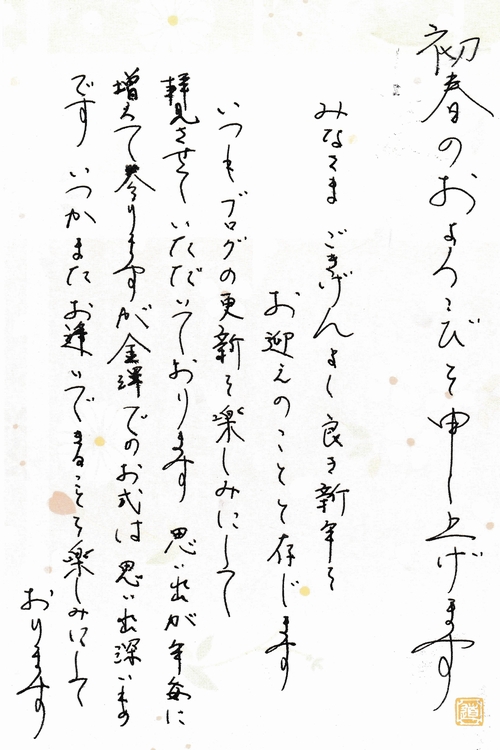 初春のおよろこびを申し上げます
みなさま ごきげんよく良き新年を
お迎えのことと存じます
いつもブログの更新を楽しみにして
拝見させていただいております 思い出が年毎に
増えて参りますが金澤でのお式は思い出深いもの
です いつかまたお逢いできることを楽しみにして
おります
道